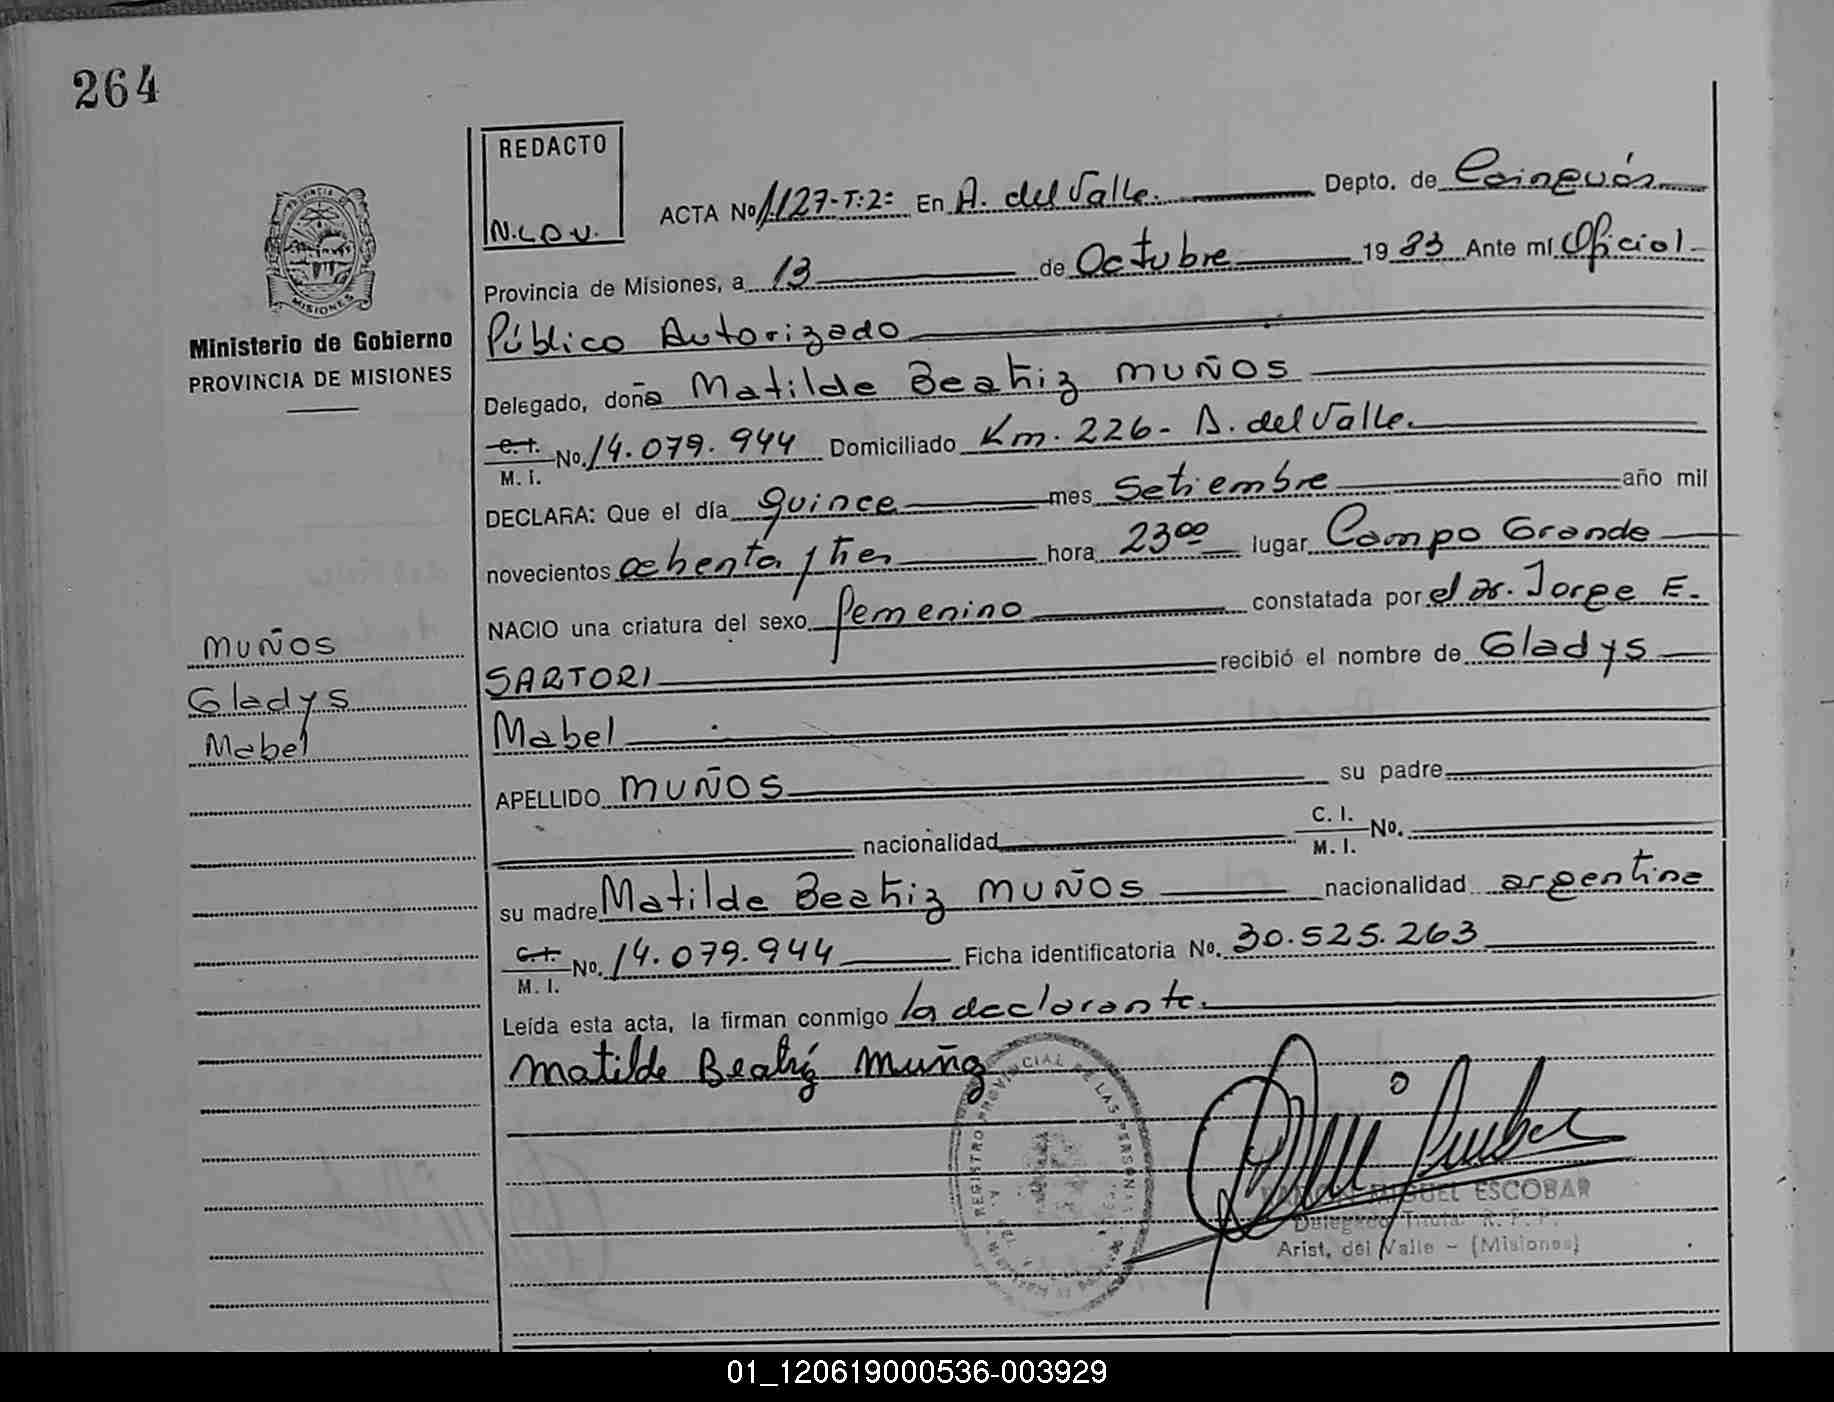 264
REDACTO
N.L.D.V.
PROVINCIA DE
MISIONES
Ministerio de Gobierno
PROVINCIA DE MISIONES
ACTA No 1127-T:2º En A. del Valle. Depto. de Cainguás
Provincia de Misiones, a 13 de Octubre 1983 Ante mí Oficial
Público Autorizado
Delegado, doña Matilde Beatriz MUÑOS
C.I. M. I. No. 14.079.944 Domiciliado Km. 226- A. del Valle.
DECLARA: Que el día quince mes Setiembre año mil
novecientos ochenta y tres hora 23⁰⁰ lugar Campo Grande
NACIO una criatura del sexo femenino constatada por el Dr. Jorge E.
SARTORI recibió el nombre de Gladys
Mabel
APELLIDO MUÑOS su padre
nacionalidad C. I. M. I. No.
su madre Matilde Beatriz MUÑOS nacionalidad argentina
C.I. M. I. No. 14.079.944 Ficha identificatoria No. 30.525.263
Leída esta acta, la firman conmigo la declarante.
Matilde Beatriz Muñoz
MUÑOS
Gladys
Mabel
REGISTRO PROVINCIAL DE LAS PERSONAS
RAMON MIGUEL ESCOBAR
Delegado Titular R. P. P.
Arist. del Valle - (Misiones)
01_120619000536-003929